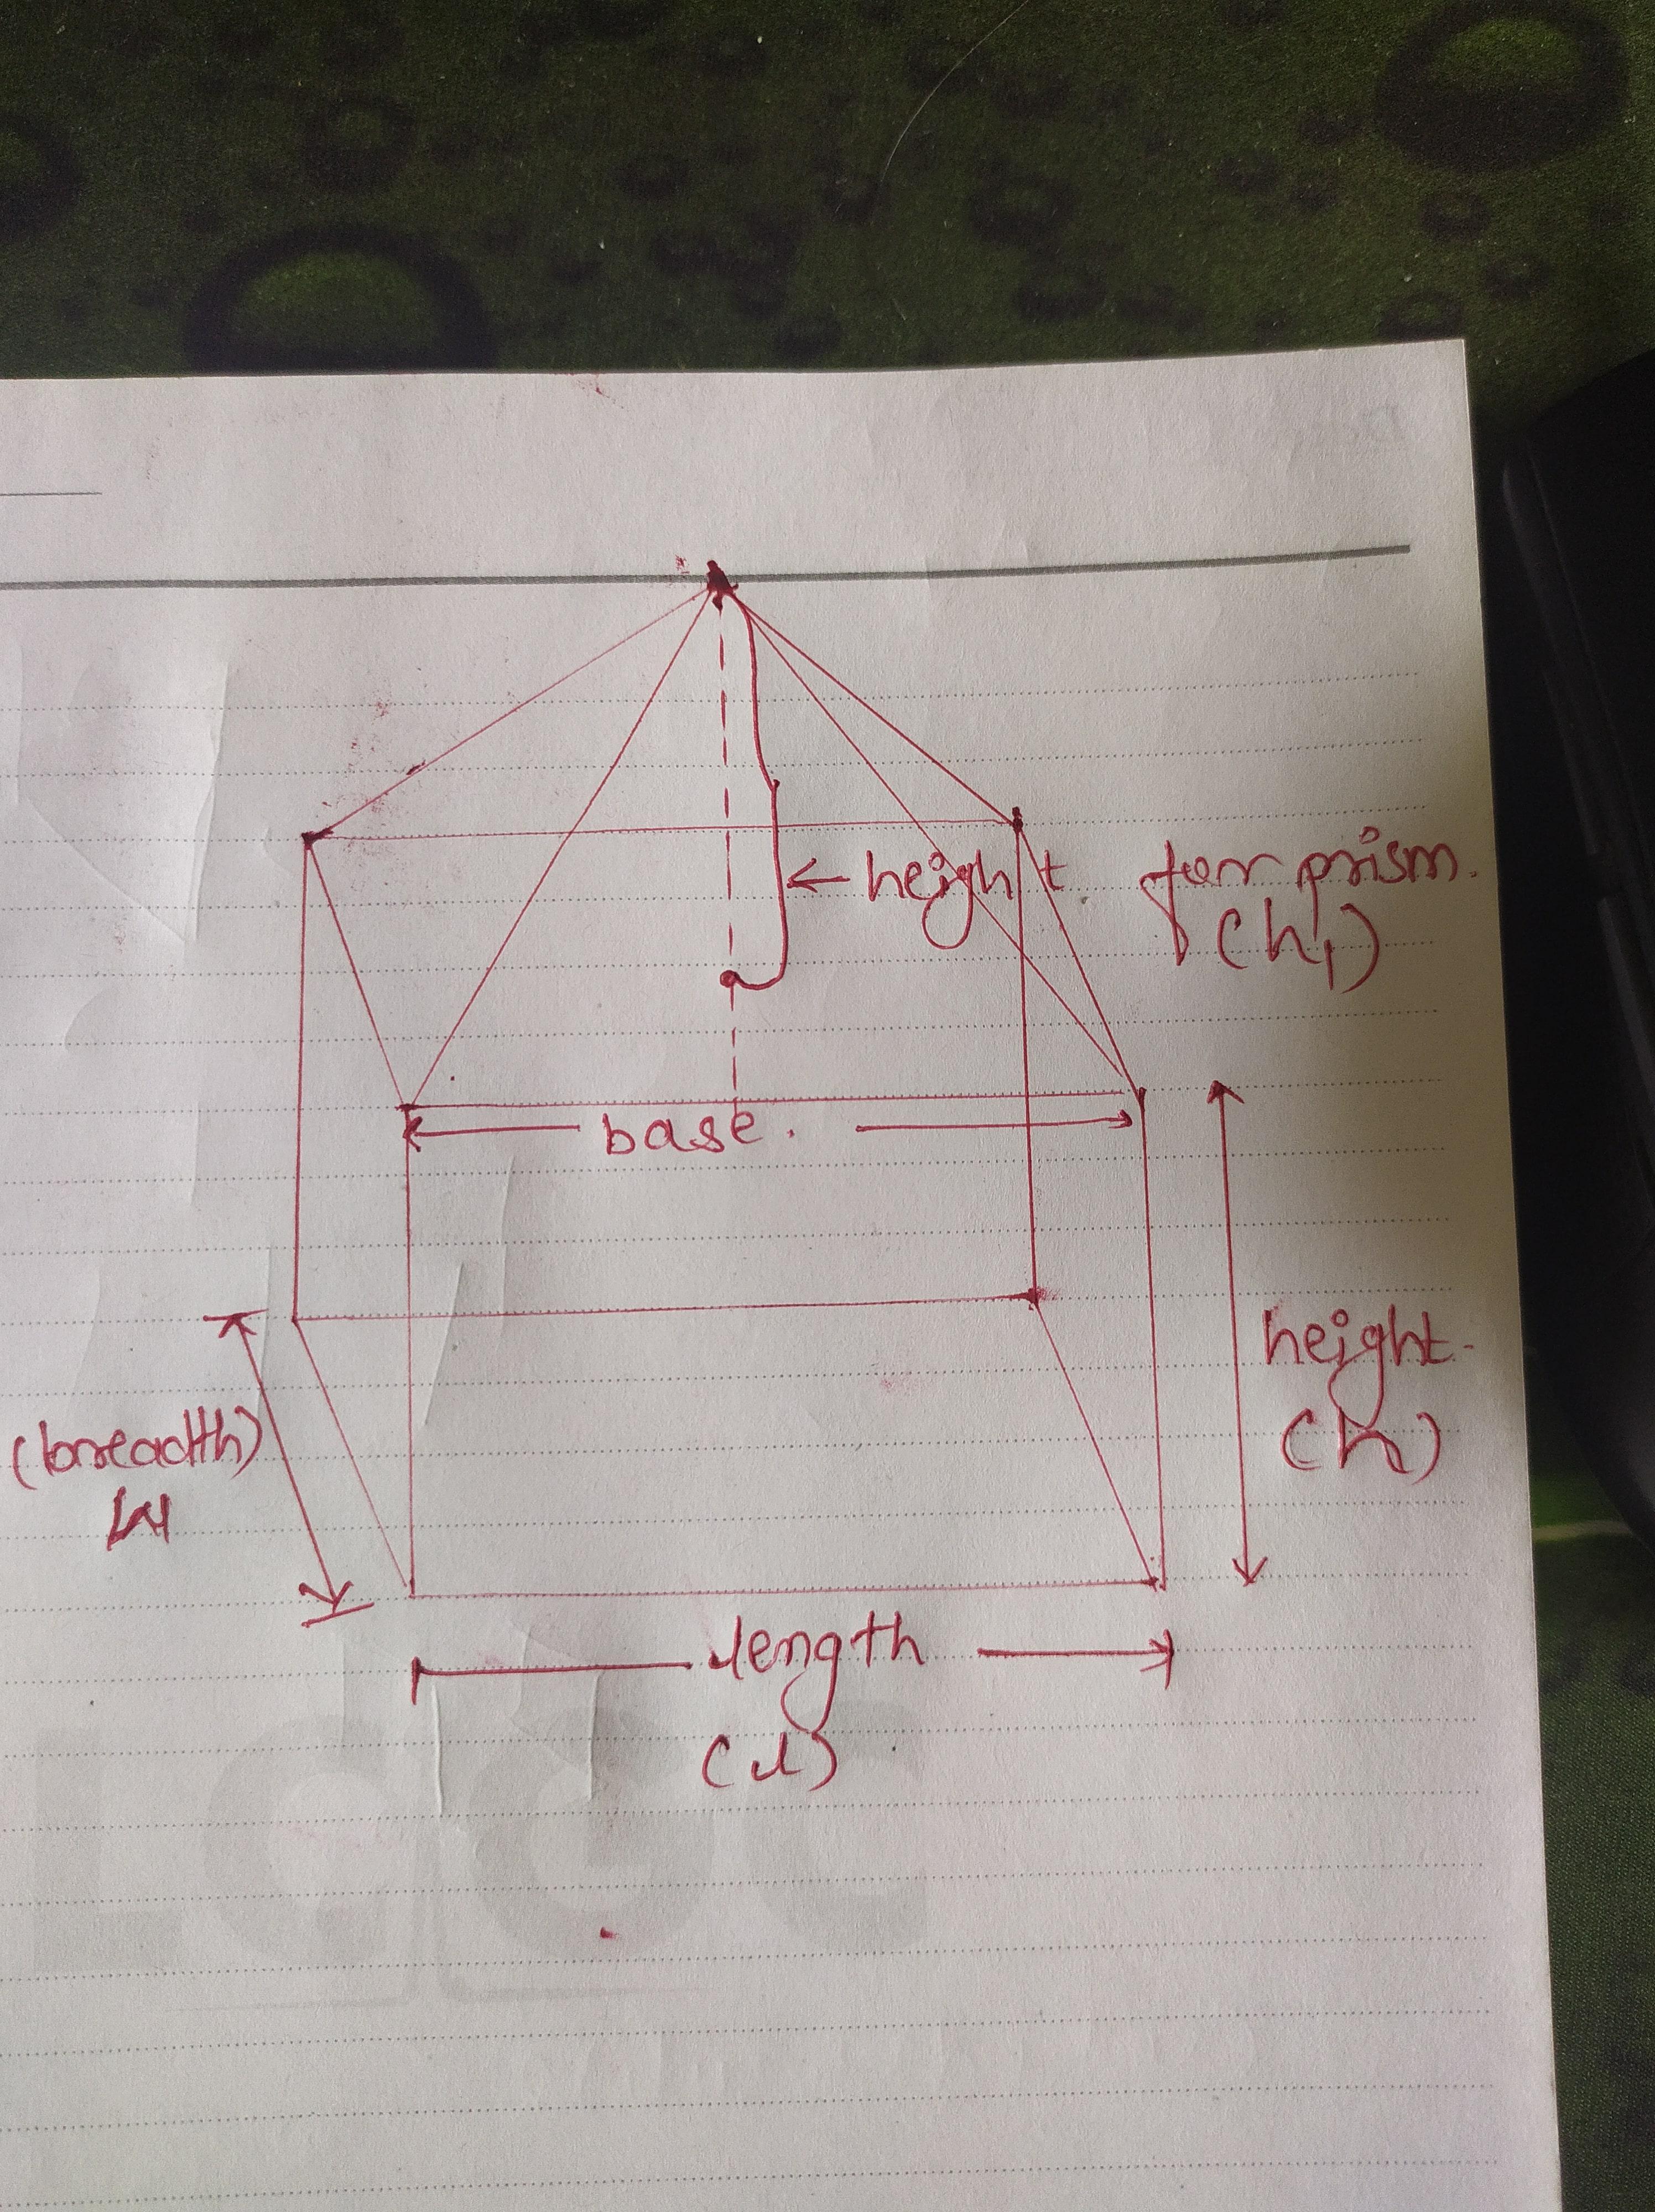 height for prism.
(h1)
base.
height.
(h)
(breadth)
W
length
(l)